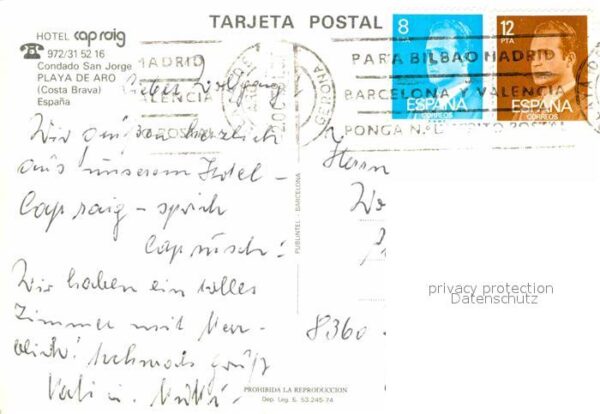 TARJETA POSTAL
HOTEL cap roig
972/31 52 16
Condado San Jorge
PLAYA DE ARO
(Costa Brava)
España
8
12
PTA
ESPAÑA
CORREOS
ESPAÑA
CORREOS
MADRID
VALENCIA
GERONA
PARA BILBAO MADRID
BARCELONA Y VALENCIA
PONGA N.º DISTRITO POSTAL
Lieber Wolfgang
Wir grüßen herzlich
aus unserem Hotel -
Cap roig - sprich
Cap rusch!
Wir haben ein tolles
Zimmer mit Meer-
blick! Nochmals Grüße
Vati u. Mutti
Herrn
8360
PUBLINTEL - BARCELONA
privacy protection
Datenschutz
PROHIBIDA LA REPRODUCCION
Dep. Leg. B. 53.245-74